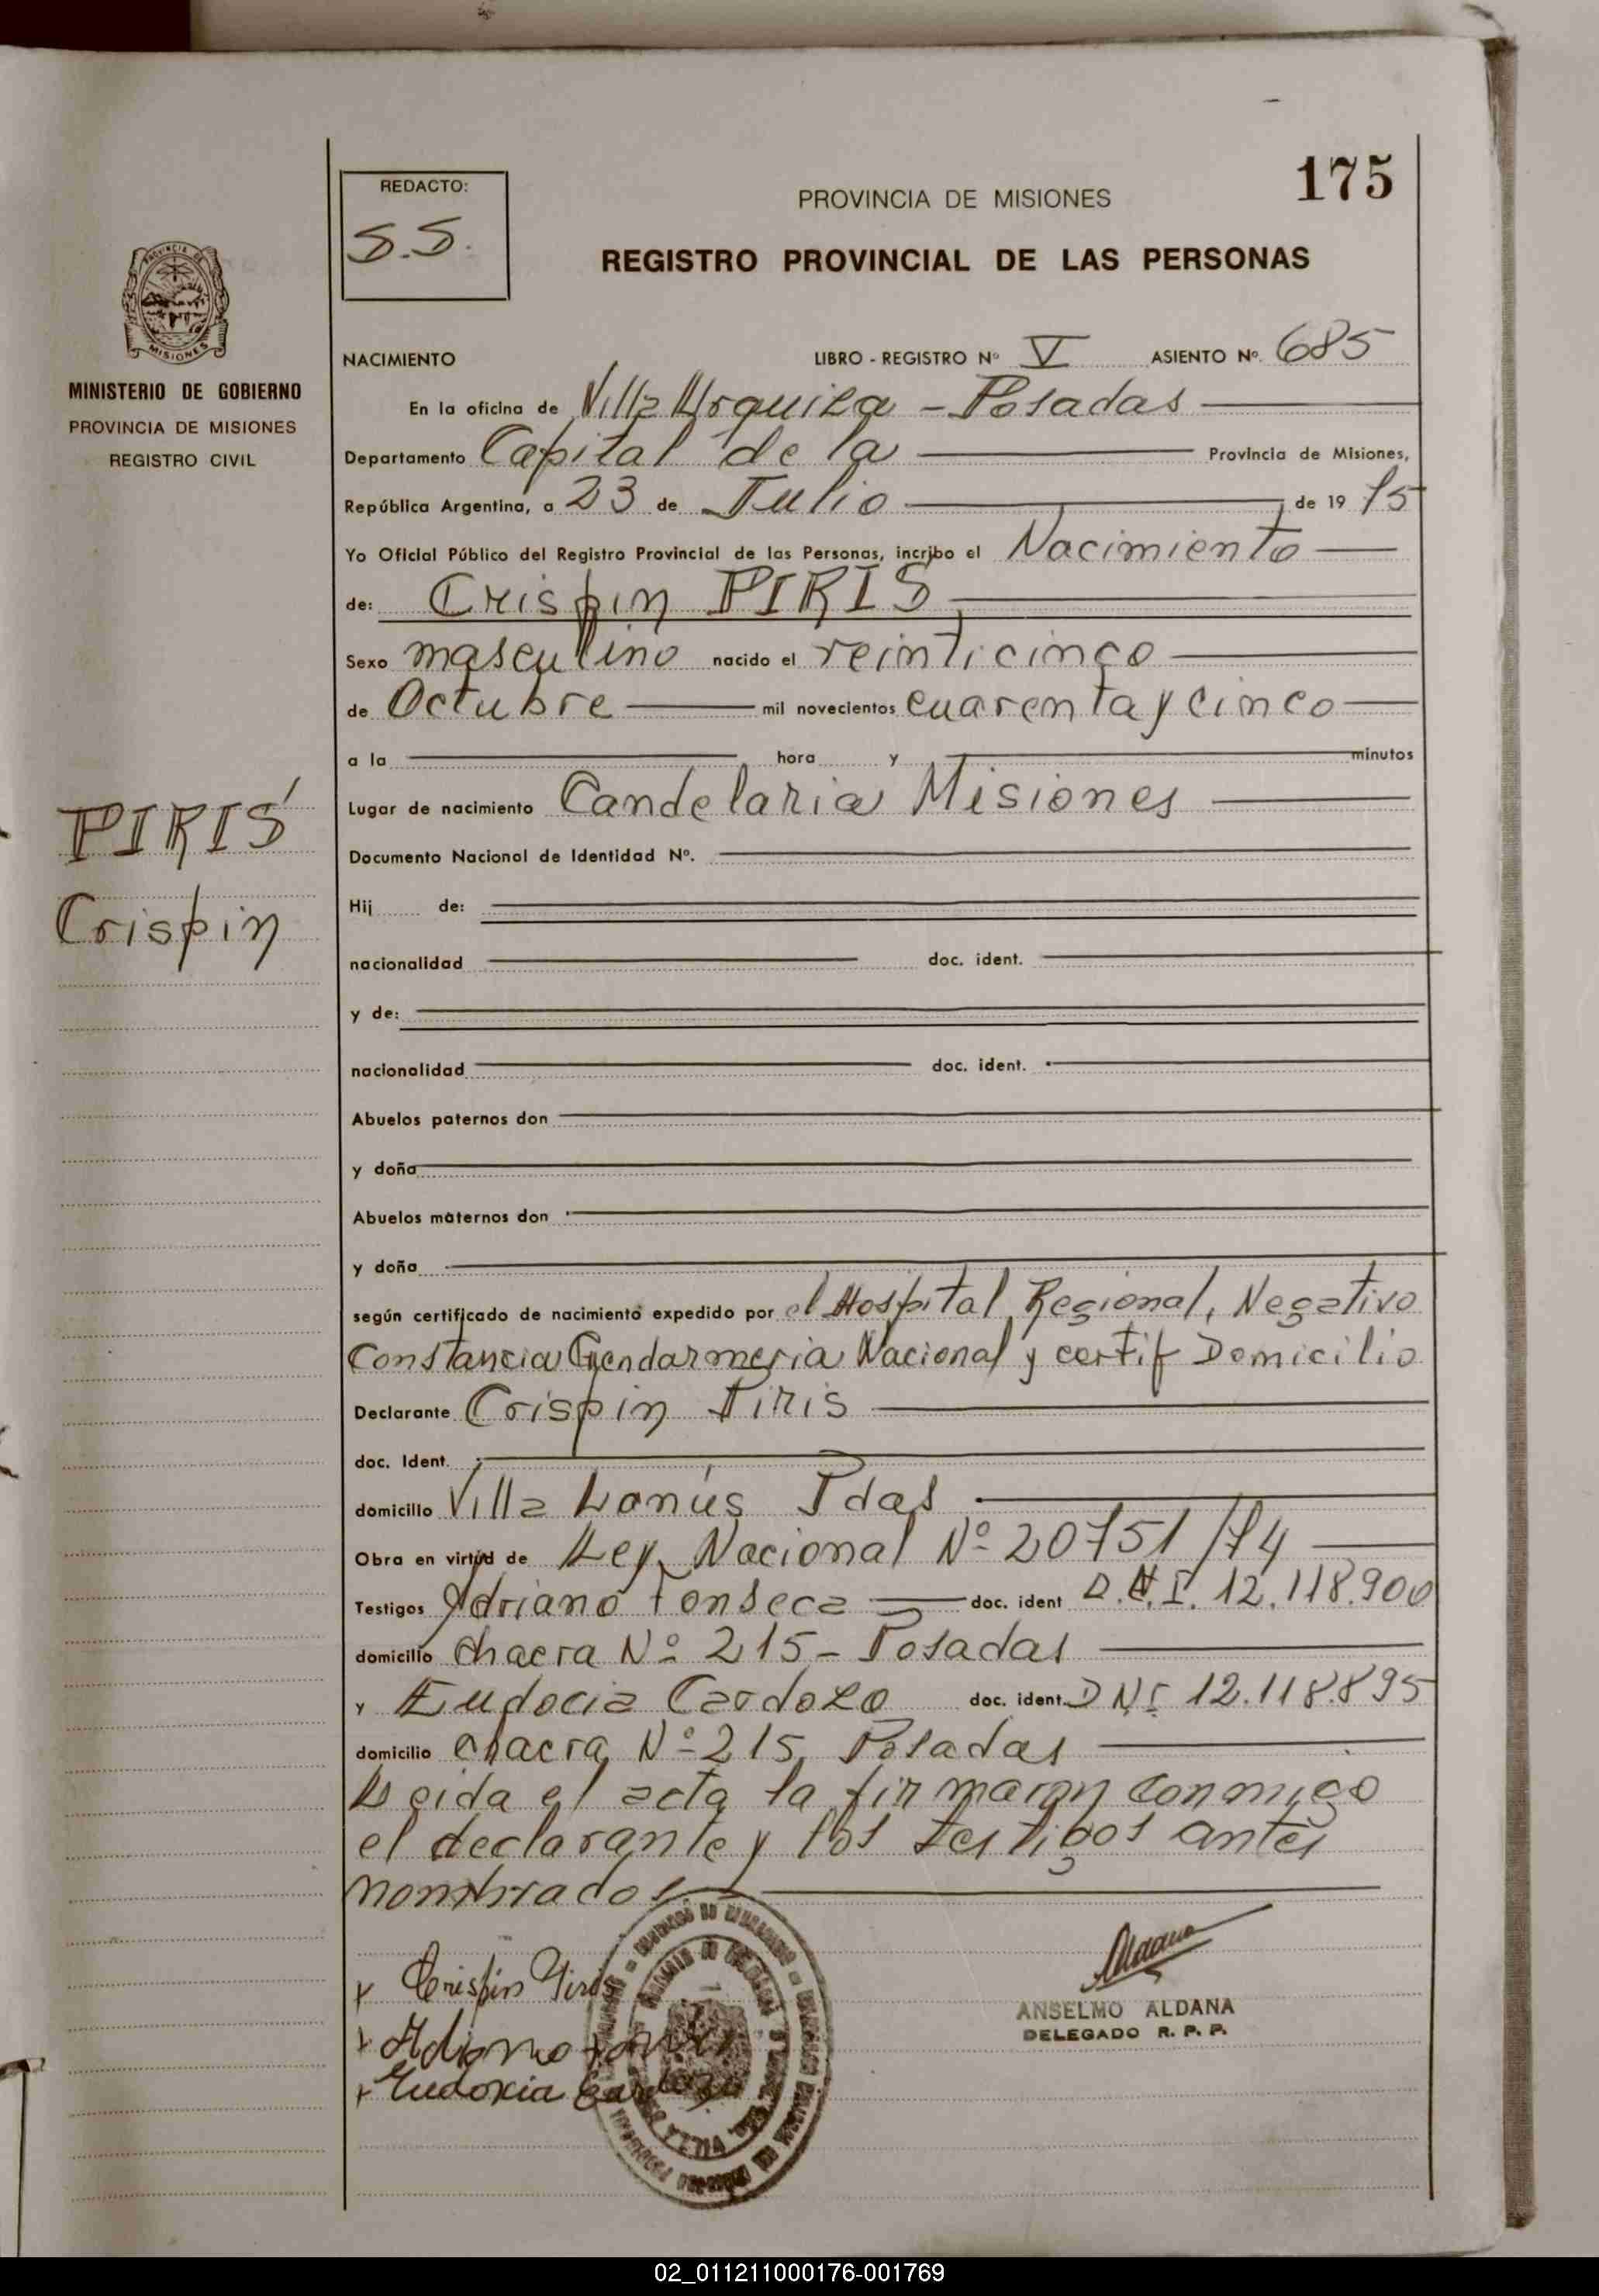 175
REDACTO:
S.S.
PROVINCIA DE MISIONES
REGISTRO PROVINCIAL DE LAS PERSONAS
PROVINCIA DE
MISIONES
MINISTERIO DE GOBIERNO
PROVINCIA DE MISIONES
REGISTRO CIVIL
NACIMIENTO LIBRO - REGISTRO Nº V ASIENTO Nº. 685
En la oficina de Villa Urquiza - Posadas
Departamento Capital de la Provincia de Misiones,
República Argentina, a 23 de Julio de 19 75
Yo Oficial Público del Registro Provincial de las Personas, incribo el Nacimiento
de: Crispin PIRIS
Sexo masculino nacido el veinticinco
de Octubre mil novecientos cuarenta y cinco
a la hora y minutos
Lugar de nacimiento Candelaria Misiones
PIRIS
Crispin
Documento Nacional de Identidad Nº.
Hij de:
nacionalidad doc. ident.
y de:
nacionalidad doc. ident.
Abuelos paternos don
y doña
Abuelos maternos don
y doña
según certificado de nacimiento expedido por el Hospital Regional, Negativo
Constancia Gendarmeria Nacional y certif Domicilio
Declarante Crispin Piris
doc. Ident.
domicilio Villa Lanús Pdas
Obra en virtud de Ley Nacional Nº 20751/74
Testigos Adriano Fonseca doc. ident D.N.I. 12.118.900
domicilio Chacra Nº 215 - Posadas
y Eudocia Cardozo doc. ident. DNI 12.118.895
domicilio chacra Nº 215 Posadas
Leida el acta la firmaron conmigo
el declarante y los testigos antes
nombrados.
x Crispin Piris
x Adriano
x Eudoxia Cardozo
ANSELMO ALDANA
DELEGADO R. P. P.
02_011211000176-001769